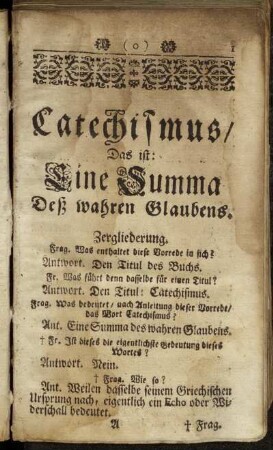 ( o ) 1
Catechismus/
Das ist:
Eine Summa
Deß wahren Glaubens.
Zergliederung.
Frag. Was enthaltet diese Vorrede in sich?
Antwort. Den Titul des Buchs.
Fr. Was führt denn dasselbe für einen Titul?
Antwort. Den Titul: Catechismus.
Frag. Was bedeutet/ nach Anleitung dieser Vorrede/
das Wort Catechismus?
Ant. Eine Summa des wahren Glaubens.
† Fr. Ist dieses die eigentlichste Bedeutung dieses
Wortes?
Antwort. Nein.
† Frag. Wie so?
Ant. Weilen dasselbe seinem Griechischen
Ursprung nach/ eigentlich ein Echo oder Wi-
derschall bedeutet.
A † Frag.